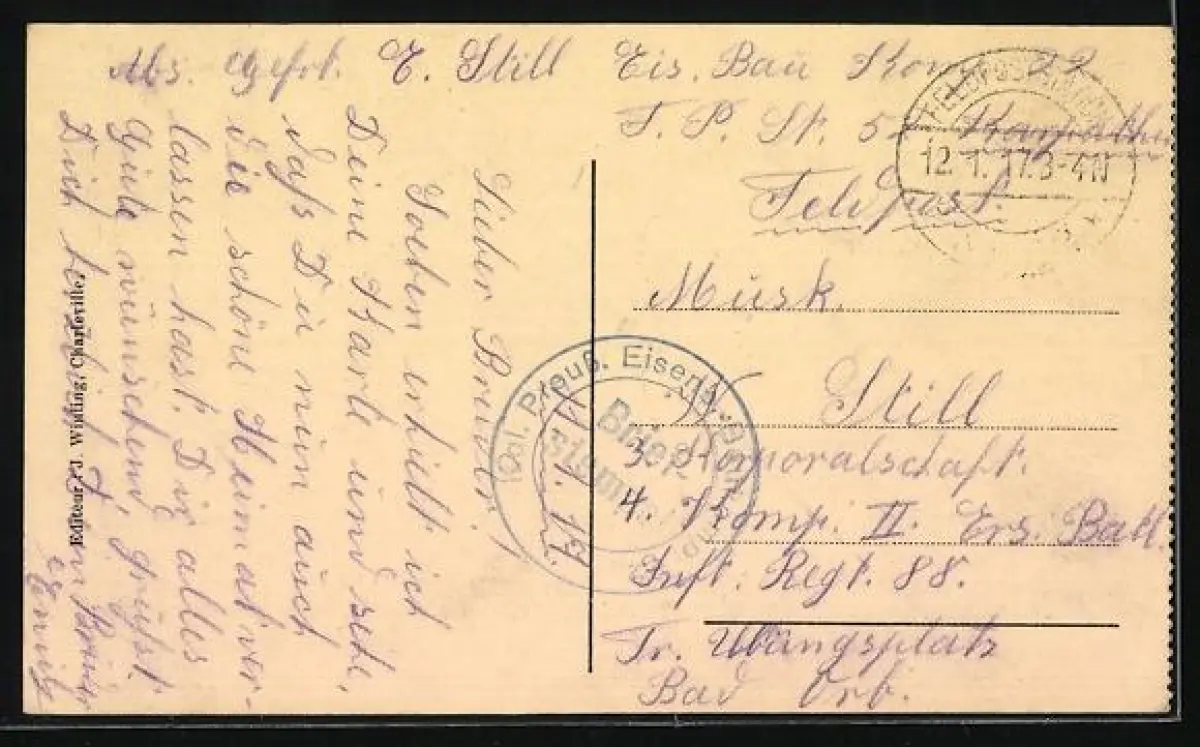 Abs. Gefrt. E. Still Eis. Bau Komp. 22
F. P. St. 52
Feldpost.
12.1.17.3-4N
Musk.
W. Still
3 Korporalschaft.
4. Komp. II. Ers. Batl.
Inft. Regt. 88.
Tr. Übungsplatz
Bad Orb.
11.1.17.
Lieber Bruder!
Soeben erhielt ich
Deine Karte und sehe,
daß Du nun auch
die schöne Heimat ver-
lassen hast. Dir alles
Gute wünschend, grüßt
Dich herzlich Dein Bruder
Emil
Kgl. Preuß. Eisenb.
Brief-
stempel
Editeur: J. Winling, Charleville.